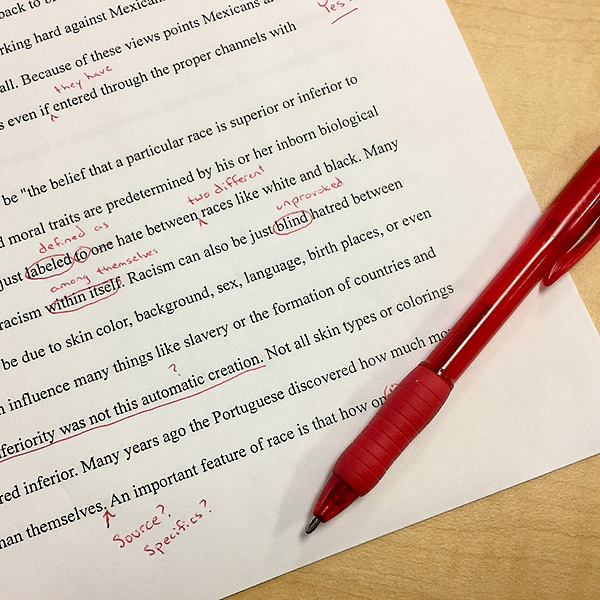 back to
Yes?
rking hard against Mexicans
all. Because of these views points Mexicans
they have
s even if entered through the proper channels with
be "the belief that a particular race is superior or inferior to
d moral traits are predetermined by his or her inborn biological
two different
just labeled to one hate between races like white and black. Many
defined as
unprovoked
racism within itself. Racism can also be just blind hatred between
among themselves
be due to skin color, background, sex, language, birth places, or even
n influence many things like slavery or the formation of countries and
?
feriority was not this automatic creation. Not all skin types or colorings
red inferior. Many years ago the Portuguese discovered how much mo
han themselves. An important feature of race is that how on
Source?
Specifics?